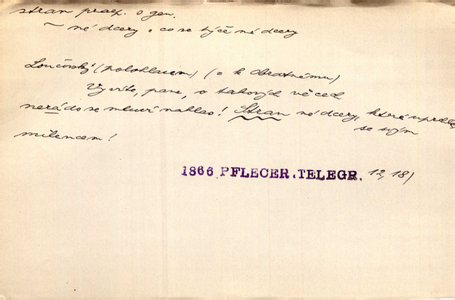 stran praep. s gen.
~ mé dcery, co se týče mé dcery
Loučovský (polohlasem) (o k Obratnému)
Vy víte, pane, o takových věcech
nerádo se mluví nahlas! Stran mé dcery, která uprchla
se svým
milencem!
1866 PFLEGER.TELEGR. 12, 181